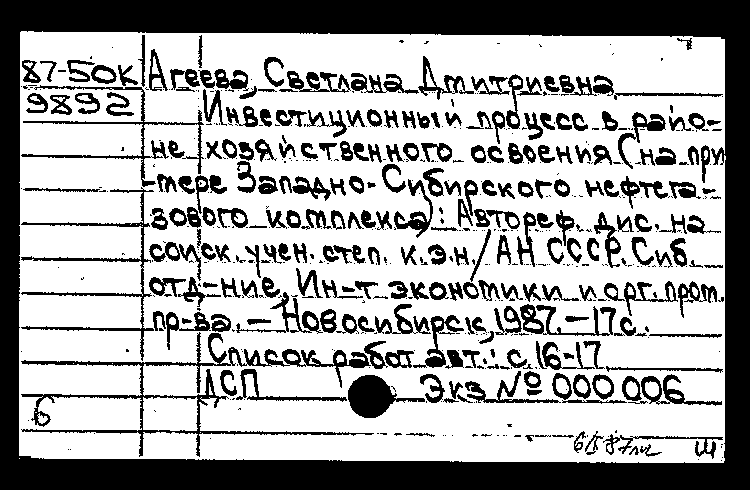 87-50К Агеева, Светлана Дмитриевна
9892 Инвестиционный процесс в райо-
не хозяйственного освоения (на при
мере Западно-Сибирского нефтега-
зового комплекса): Автореф. дис. на
соиск. учен. степ. к.э.н./АН СССР. Сиб.
отд-ние, Ин-т экономики и орг. пром.
пр-ва. — Новосибирск, 1987. — 17с.
Список работ авт.: с. 16-17
ДСП Экз № 000 006
б
Ш